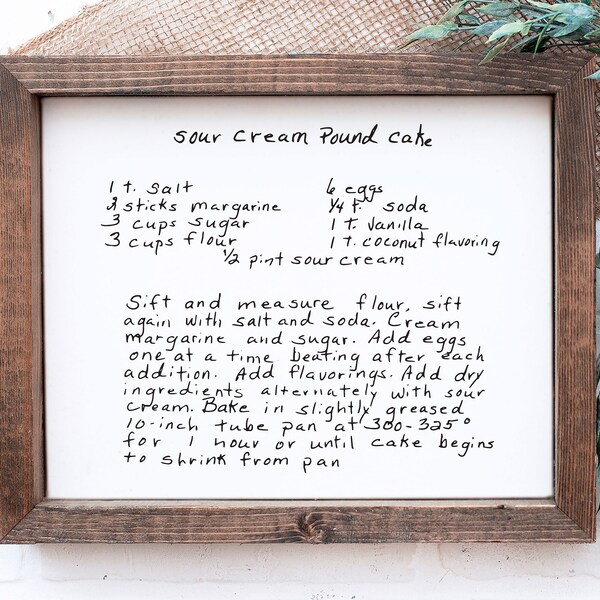 sour cream Pound cake
1 t. salt
2 sticks margarine
3 cups sugar
3 cups flour
6 eggs
1/4 t. soda
1 t. vanilla
1 t. coconut flavoring
1/2 pint sour cream
Sift and measure flour, sift
again with salt and soda. Cream
margarine and sugar. Add eggs
one at a time beating after each
addition. Add flavorings. Add dry
ingredients alternately with sour
cream. Bake in slightly greased
10-inch tube pan at 300-325°
for 1 hour or until cake begins
to shrink from pan